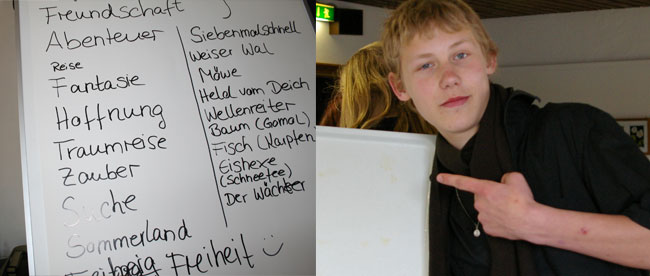 Freundschaft
Abenteuer
Reise
Fantasie
Hoffnung
Traumreise
Zauber
Suche
Sommerland
Freiheit
Siebenmalschnell
Weiser Wal
Möwe
Held vom Deich
Wellenreiter
Baum (Gomol)
Fisch (Karpfen
Eishexe
(Schneefee)
Der Wächter